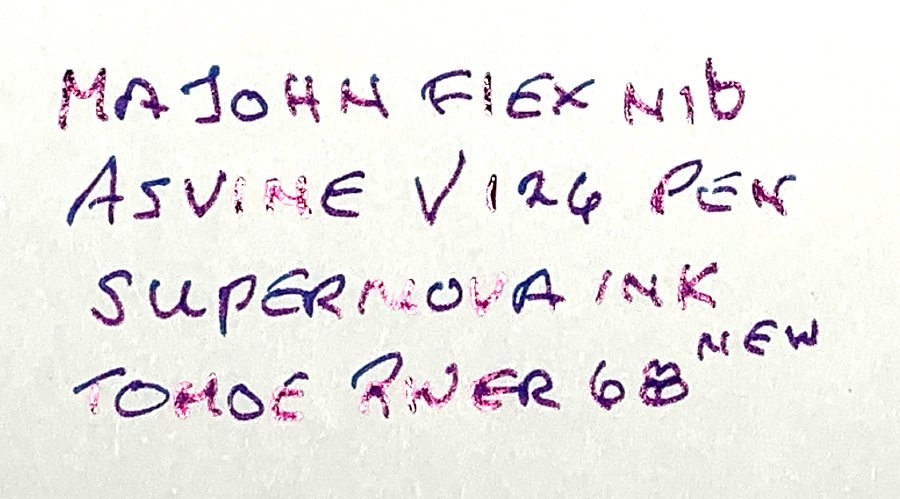 MAJOHN FLEX NIB
ASVINE V126 PEN
SUPERNOVA INK
TOMOE RIVER 68 NEW